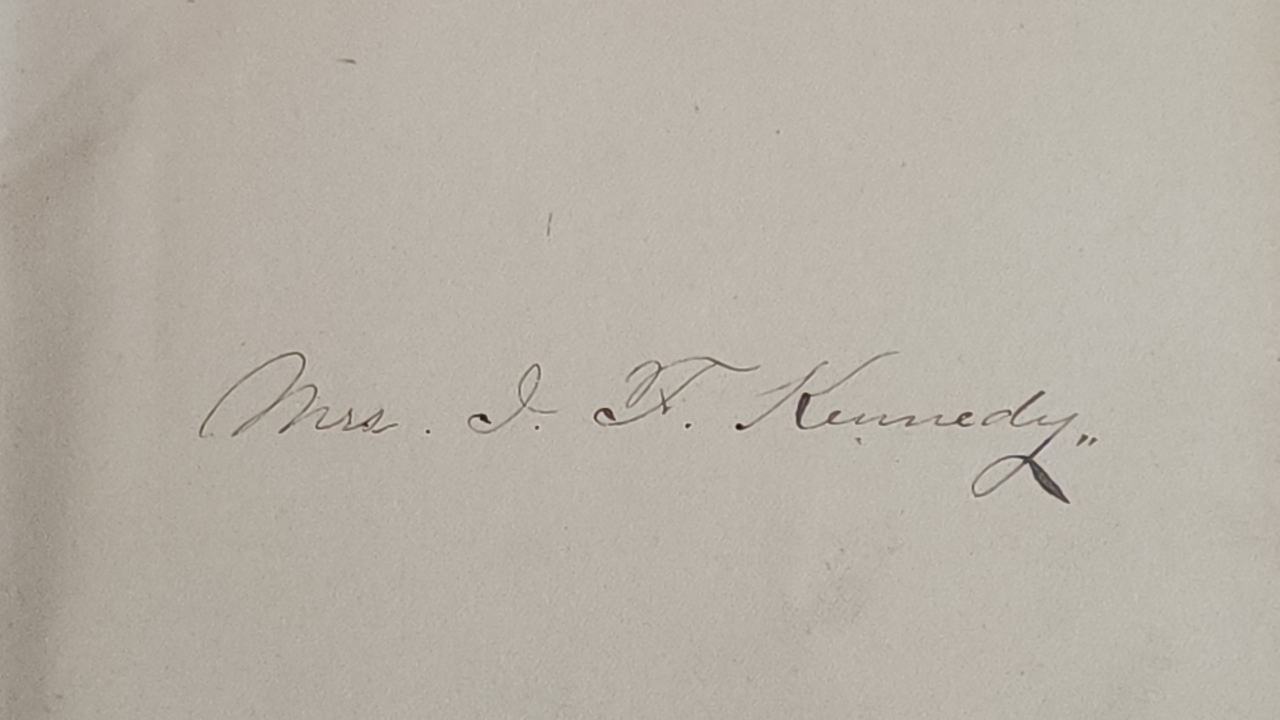 Mrs. J. F. Kennedy"